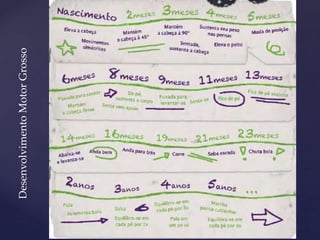 Desenvolvimento Motor Grosso
Nascimento 2meses 3meses 4meses 5meses
Eleva a cabeça
Movimentos simétricos
Mantém a cabeça a 45°
Mantém a cabeça a 90°
Sustenta seu peso nas pernas
Muda de posição
Sentada, sustenta a cabeça
Eleva o peito
6meses 8meses 9meses 11meses 13meses
Puxada para sentar
Mantém a cabeça firme
De pé, sustenta o corpo
Senta sem apoio
Puxada para levantar-se
Senta-se
Fica de pé
Fica de pé sozinha
14meses 16meses 19meses 21meses 23meses
Abaixa-se e levanta-se
Anda bem
Anda para trás
Corre
Sobe escada
Chuta bola
2anos 3anos 4anos 5anos ...
Pula
Arremessa bola
Salta
Equilibra-se em cada pé por 2s
Equilibra-se em cada pé por 3s
Pula em um pé só
Marcha
Equilibra-se em cada pé por 6s